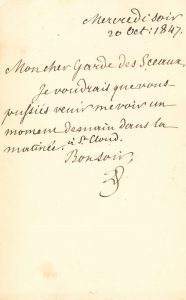 Mercredi soir
20 Oct: 1847.
Mon cher Garde des Sceaux
Je voudrais que vous
pussiés venir me voir un
moment demain dans la
matinée, à St Cloud.
Bonsoir,